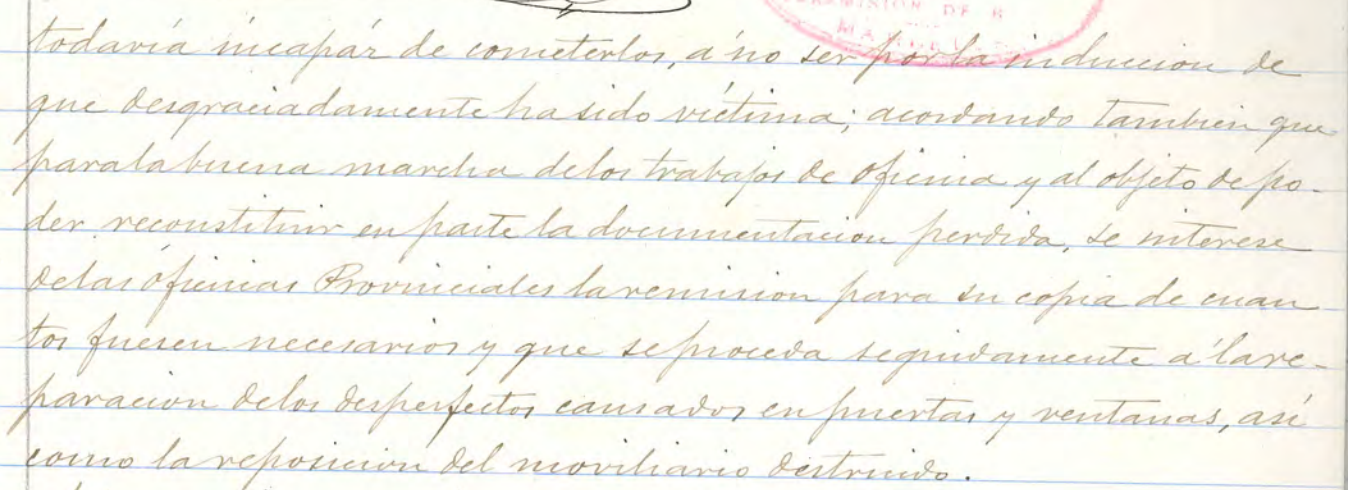 todavía incapáz de cometerlos, á no ser por la induccion de
que desgraciadamente ha sido victima; acordando tambien que
para la buena marcha de los trabajos de oficina y al objeto de po-
der reconstituir en parte la documentacion perdida, se interese
de las oficinas Provinciales la remision para su copia de cuan
tos fuesen necesarios y que se proceda seguidamente á la re-
paracion de los desperfectos causados en puertas y ventanas, así
como la reposicion del moviliario destruido.